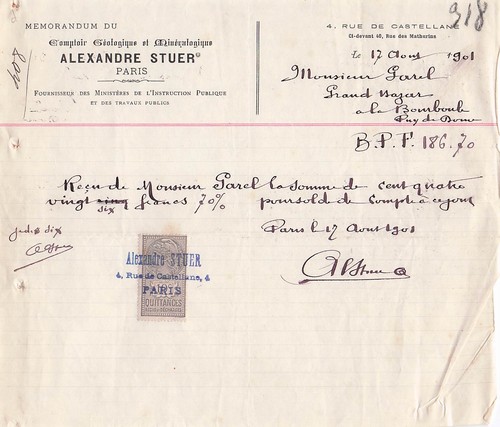 MEMORANDUM DU
Comptoir Géologique et Minéralogique
ALEXANDRE STUER
PARIS
FOURNISSEUR DES MINISTÈRES DE L'INSTRUCTION PUBLIQUE
ET DES TRAVAUX PUBLICS
408
4, RUE DE CASTELLANE
Ci-devant 40, Rue des Mathurins
918
Le 17 Aout 1901
Monsieur Garel
Grand Bazar
a la Bourboule
Puy de Dome
B.P.F. 186.70
Reçu de Monsieur Garel la somme de cent quatre
vingt six francs 70% pour solde de compte a ce jour
Paris le 17 Aout 1901
AStuer
Alexandre STUER
4, Rue de Castellane, 4
PARIS
QUITTANCES